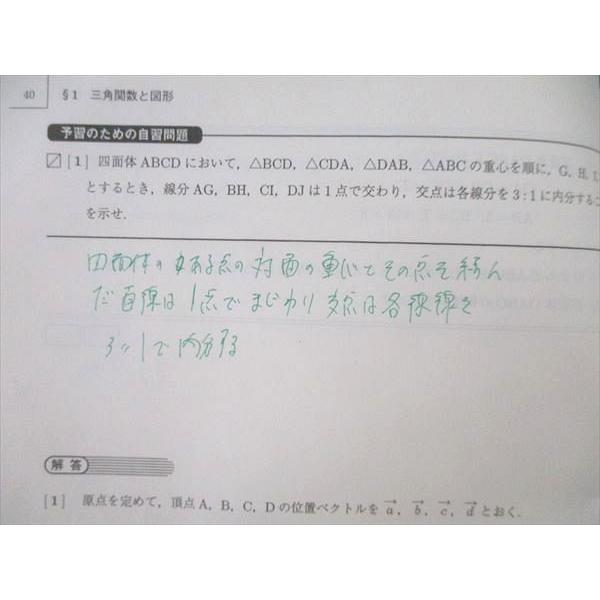 40 §1 三角関数と図形
予習のための自習問題
[1] 四面体 ABCD において，△BCD，△CDA，△DAB，△ABC の重心を順に，G，H，I，
とするとき，線分 AG，BH，CI，DJ は1点で交わり，交点は各線分を 3：1 に内分するこ
を示せ．
四面体の ある点の対面の重心とその点を結ん
だ直線は 1点でまじわり 交点は各線を
3：1で内分する
解答
[1] 原点を定めて，頂点 A，B，C，D の位置ベクトルを a⃗，b⃗，c⃗，d⃗ とおく．